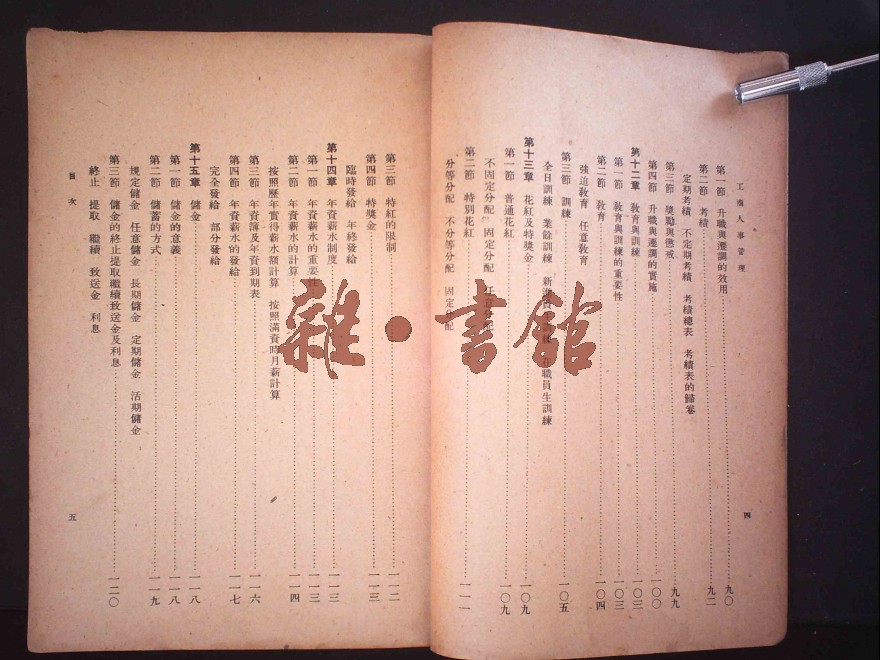 工商人事管理
第一節 升職與遷調的效用 九〇
第二節 考績 九二
定期考績 不定期考績 考績總表 考績表的歸卷
第三節 獎勵與懲戒 九九
第四節 升職與遷調的實施 一〇〇
第十二章 教育與訓練 一〇三
第一節 教育與訓練的重要性 一〇三
第二節 教育 一〇四
強迫教育 任意教育
第三節 訓練 一〇五
全日訓練 業餘訓練 新進 職員生訓練
第十三章 花紅及特獎金 一〇九
第一節 普通花紅 一〇九
不固定分配 固定分配 任意分配
第二節 特別花紅 一一一
分等分配 不分等分配 固定分配
四
第三節 特紅的限制 一一二
第四節 特獎金 一一三
臨時發給 年終發給
第十四章 年資薪水制度 一一三
第一節 年資薪水的重要性 一一三
第二節 年資薪水的計算 一一四
按照歷年實得薪水額計算 按照滿資時月薪計算
第三節 年資簿及年資到期表 一一六
第四節 年資薪水的發給 一一七
完全發給 部分發給
第十五章 儲金 一一八
第一節 儲金的意義 一一八
第二節 儲蓄的方式 一一九
規定儲金 任意儲金 長期儲金 定期儲金 活期儲金
第三節 儲金的終止提取繼續致送金及利息 一二〇
終止 提取 繼續 致送金 利息
目次
五
雜·書館